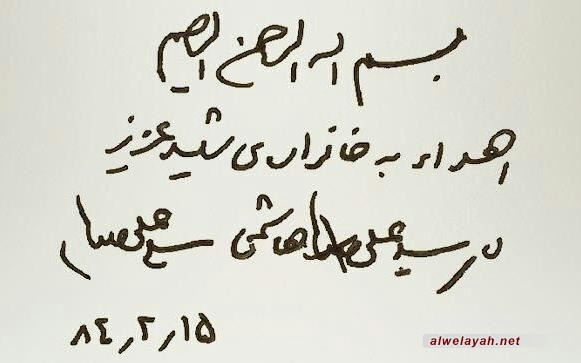 بسم الله الرحمن الرحیم
اهداء به خانواده‌ی شهید عزیز
سید علی هاشمی سید علی
۸۴٫۲٫۱۵
alwelayah.net